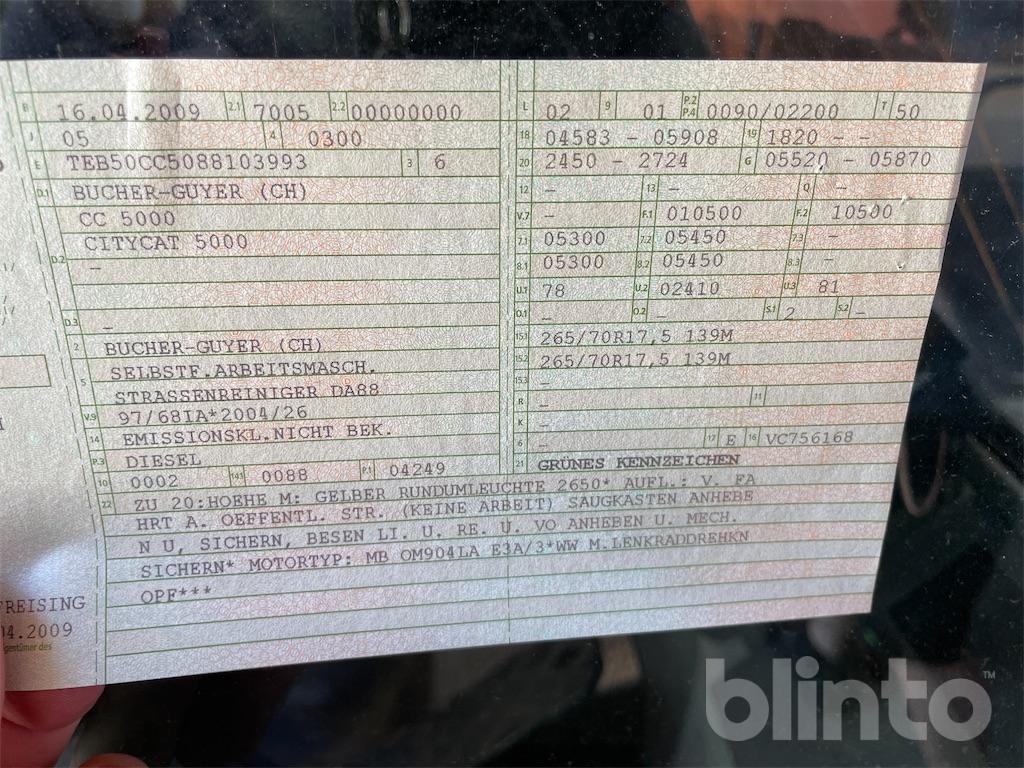 B 16.04.2009 2.1 7005 2.2 00000000
J 05 4 0300
E TEB50CC5088103993 3 6
D.1 BUCHER-GUYER (CH)
CC 5000
CITYCAT 5000
D.2 –
D.3 –
2 BUCHER-GUYER (CH)
5 SELBSTF.ARBEITSMASCH.
STRASSENREINIGER DA88
V.9 97/68IA*2004/26
14 EMISSIONSKL.NICHT BEK.
P.3 DIESEL
10 0002 14.1 0088 P.1 04249
L 02 9 01 P.2 P.4 0090/02200 T 50
18 04583 - 05908 19 1820 - -
20 2450 - 2724 G 05520 - 05870
12 – 13 – Q –
V.7 – F.1 010500 F.2 10500
7.1 05300 7.2 05450 7.3 –
8.1 05300 8.2 05450 8.3 –
U.1 78 U.2 02410 U.3 81
O.1 – O.2 – S.1 2 S.2 –
15.1 265/70R17,5 139M
15.2 265/70R17,5 139M
15.3 –
R – 11
K –
6 – 17 E 16 VC756168
21 GRÜNES KENNZEICHEN
22 ZU 20:HOEHE M: GELBER RUNDUMLEUCHTE 2650* AUFL.: V. FA
HRT A. OEFFENTL. STR. (KEINE ARBEIT) SAUGKASTEN ANHEBE
N U, SICHERN, BESEN LI. U. RE. U. VO ANHEBEN U. MECH.
SICHERN* MOTORTYP: MB OM904LA E3A/3*WW M.LENKRADDREHKN
OPF***
FREISING
04.2009
gentümer des
blinto™